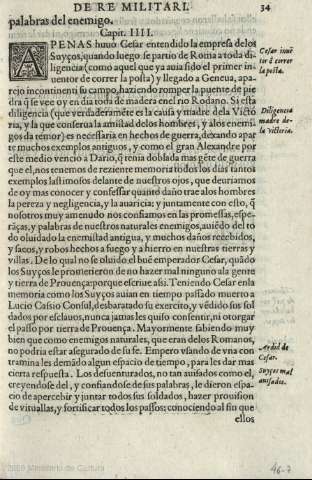 DE RE MILITARI.
34
palabras del enemigo.
Capit. IIII.
APENAS huuo Cesar entendido la empresa de los
Suyços, quando luego se partio de Roma a toda di-
ligencia (como aquel que ya auia sido el primer in-
uentor de correr la posta) y llegado a Geneua, apa-
rejo incontinenti su campo, haziendo romper la puente de pie
dra q̃ se vee oy en dia toda de madera en el rio Rodano. Si esta
diligencia (que verdaderamẽte es la causa y madre dela Victo
ria, y la que conserua la amistad delos hombres, y a los enemi-
gos da temor) es necessaria en hechos de guerra, dexando apar
te muchos exemplos antiguos, y como el gran Alexandre por
este medio vencio a Dario, q̃ tenia doblada mas gẽte de guerra
que el, nos tenemos de reziente memoria todos los dias tantos
exemplos lastimosos delante de nuestros ojos, que deuriamos
de oy mas conocer y confessar quanto daño trae alos hombres
la pereza y negligencia, y la auaricia: y juntamente con esto, q̃
nosotros muy amenudo nos confiamos en las promessas, espe-
rãças, y palabras de nuestros naturales enemigos, auiẽdo del to
do oluidado la enemistad antigua, y muchos daños recebidos,
y sacos, y robos hechos a fuego y a hierro en nuestras tierras y
villas. De lo qual no se oluido el buẽ emperador Cesar, quãdo
los Suyços le prometieron de no hazer mal ninguno ala gente
y tierra de Prouença: porque escriue assi. Teniendo Cesar en la
memoria como los Suyços auian en tiempo passado muerto a
Lucio Cassio Consul, desbaratado su exercito, y vẽdido sus sol
dados por esclauos, nunca jamas les quiso consentir, ni otorgar
el passo por tierra de Prouença. Mayormente sabiendo muy
bien que como enemigos naturales, que eran delos Romanos,
no podria estar assegurado de su fe. Empero vsando de vna con
tramina les demãdo algun espacio de tiempo, para les dar mas
cierta respuesta. Los desuenturados, no tan auisados como el,
creyendose del, y confiandose de sus palabras, le dieron espa-
cio de apercebir y juntar todos sus soldados, hazer prouision
de vituallas, y fortificar todos los passos: conociendo al fin que
ellos
Cesar inuẽ
tor d̃ correr
la posta.
Diligencia
madre de-
la victoria.
Ardid de
Cesar.
Suyços mal
auisados.
2009 Ministerio de Cultura